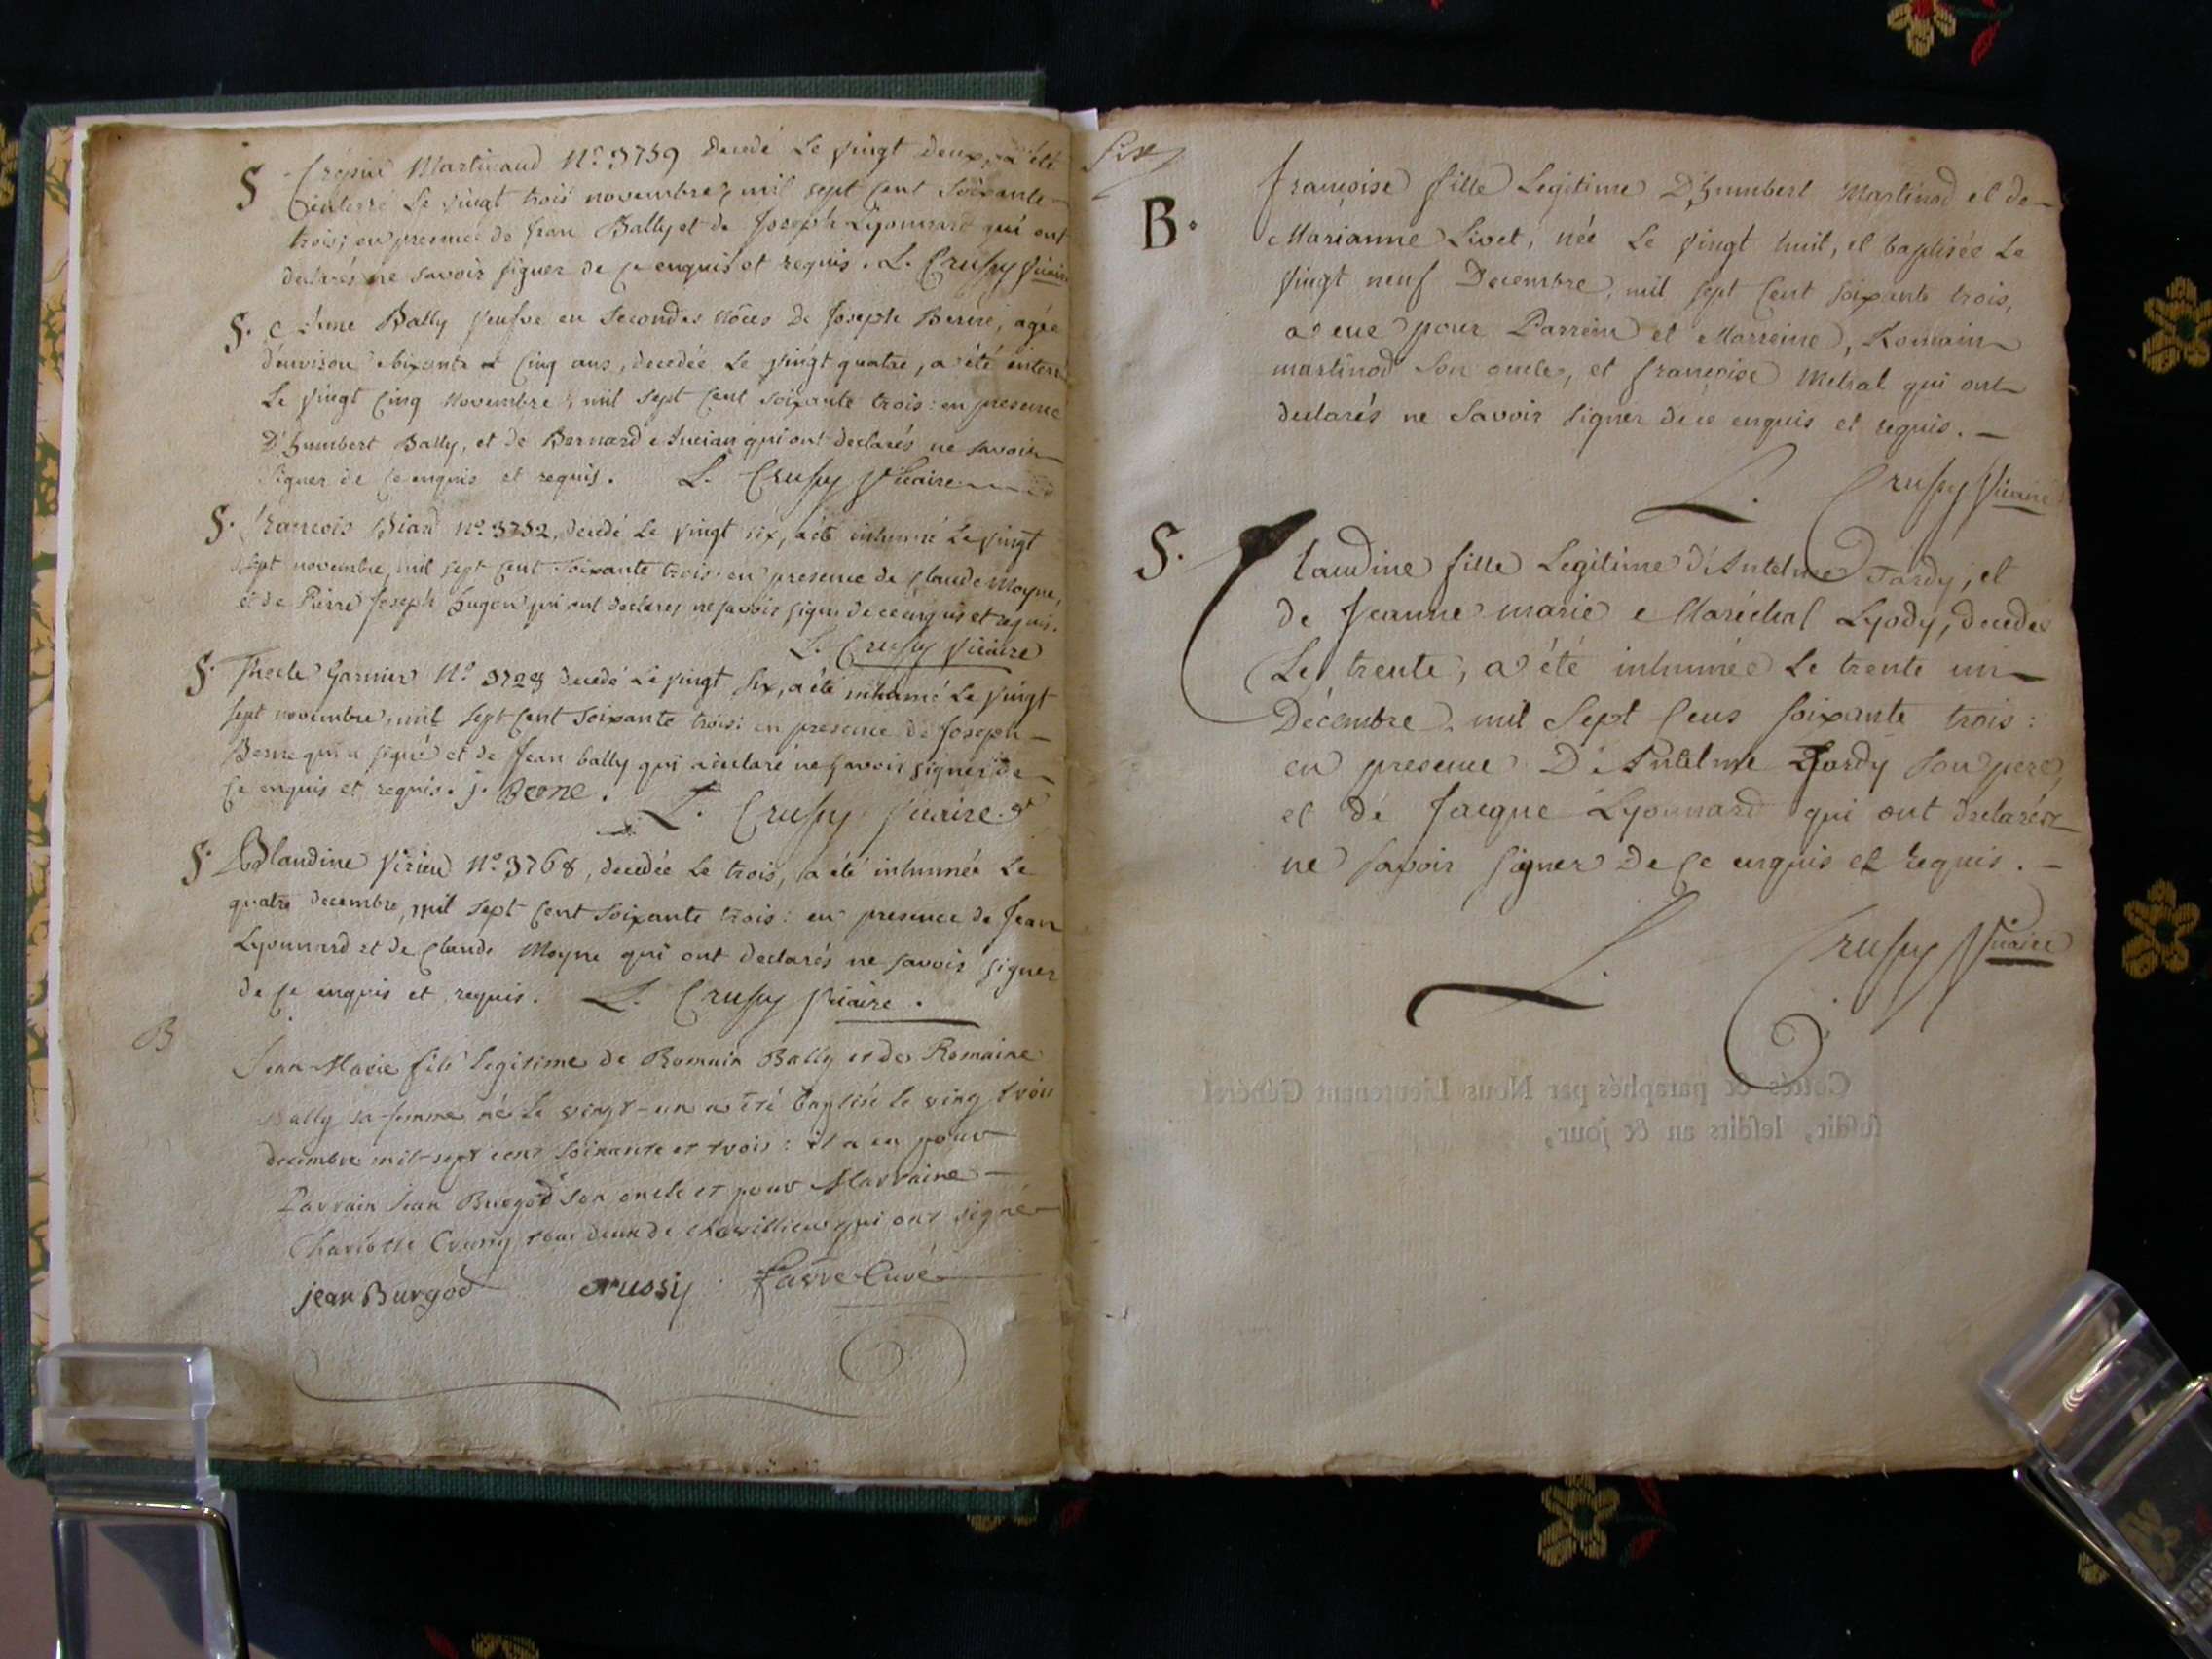 S
Crepin Martinaud N.o 3759 decedé Le vingt deux, a été
enterré Le vingt trois novembre, mil sept cent soixante
trois; en presence de Jean Bally et de Joseph Lyonnard qui ont
declarés ne savoir signer de ce enquis et requis. L. Crussy Vicaire
S.
Bally veufve en Secondes Nôces de Joseph Berne, agée
d'environ soixante et cinq ans, decedée Le vingt quatre, a été enterré
Le vingt cinq Novembre, mil sept cent soixante trois: en presence
D'humbert Bally, et de Bernard qui ont declarés ne savoir
signer de ce enquis et requis. L. Crussy Vicaire
S.
François Biard N.o 3752, decedé Le vingt six, a été inhumé Le vingt
sept novembre, mil sept cent soixante trois: en presence de Claude Moyne,
et de Pierre Joseph hugon qui ont declarés ne savoir signer de ce enquis et requis.
L. Crussy Vicaire
S.
Thecle Garnier N.o decedé Le vingt six, a été inhumé Le vingt
sept novembre, mil sept cent soixante trois: en presence de Joseph
Berne qui a signé et de Jean bally qui a declaré ne savoir signer de
ce enquis et requis. j. Berne. L. Crussy Vicaire
S.
Blandine Virieu N.o 3768, decedée Le trois, a été inhumée Le
quatre decembre, mil sept cent soixante trois: en presence de Jean
Lyonnard et de Claude Moyne qui ont declarés ne savoir signer
de ce enquis et requis. L. Crussy Vicaire.
B
Jean-Marie fils legitime de Romain Bally et de Romaine
Bally sa femme né le vingt-un a été baptisé le vingt trois
decembre mil-sept cent soixante et trois: il a eu pour
Parrain Jean Burgod son oncle et pour Marraine
Charlotte Crussy tous deux de chevillieu qui ont signé
jean Burgod crussy favre Curé
six
B.
françoise fille Legitime D'humbert Martinod et de
Marianne Livet, née Le vingt huit, et baptisée Le
vingt neuf Decembre, mil sept cent soixante trois,
a eue pour Parrein et Marreine, Romain
martinod son oncle, et françoise Metral qui ont
declarés ne savoir signer de ce enquis et requis.
L. Crussy Vicaire
S.
Claudine fille Legitime d'Antelme Tardy, et
de Jeanne marie Maréchal Lyody, decedée
Le trente, a été inhumée Le trente un
Décembre mil Sept Cens soixante trois:
en presence D'Antelme Tardy son pere,
et de Jacque Lyonnard qui ont declarés
ne savoir signer de ce enquis et requis.
L. Crussy Vicaire
Cottés & paraphés par Nous Lieutenant Général
susdit, lesdits an & jour,